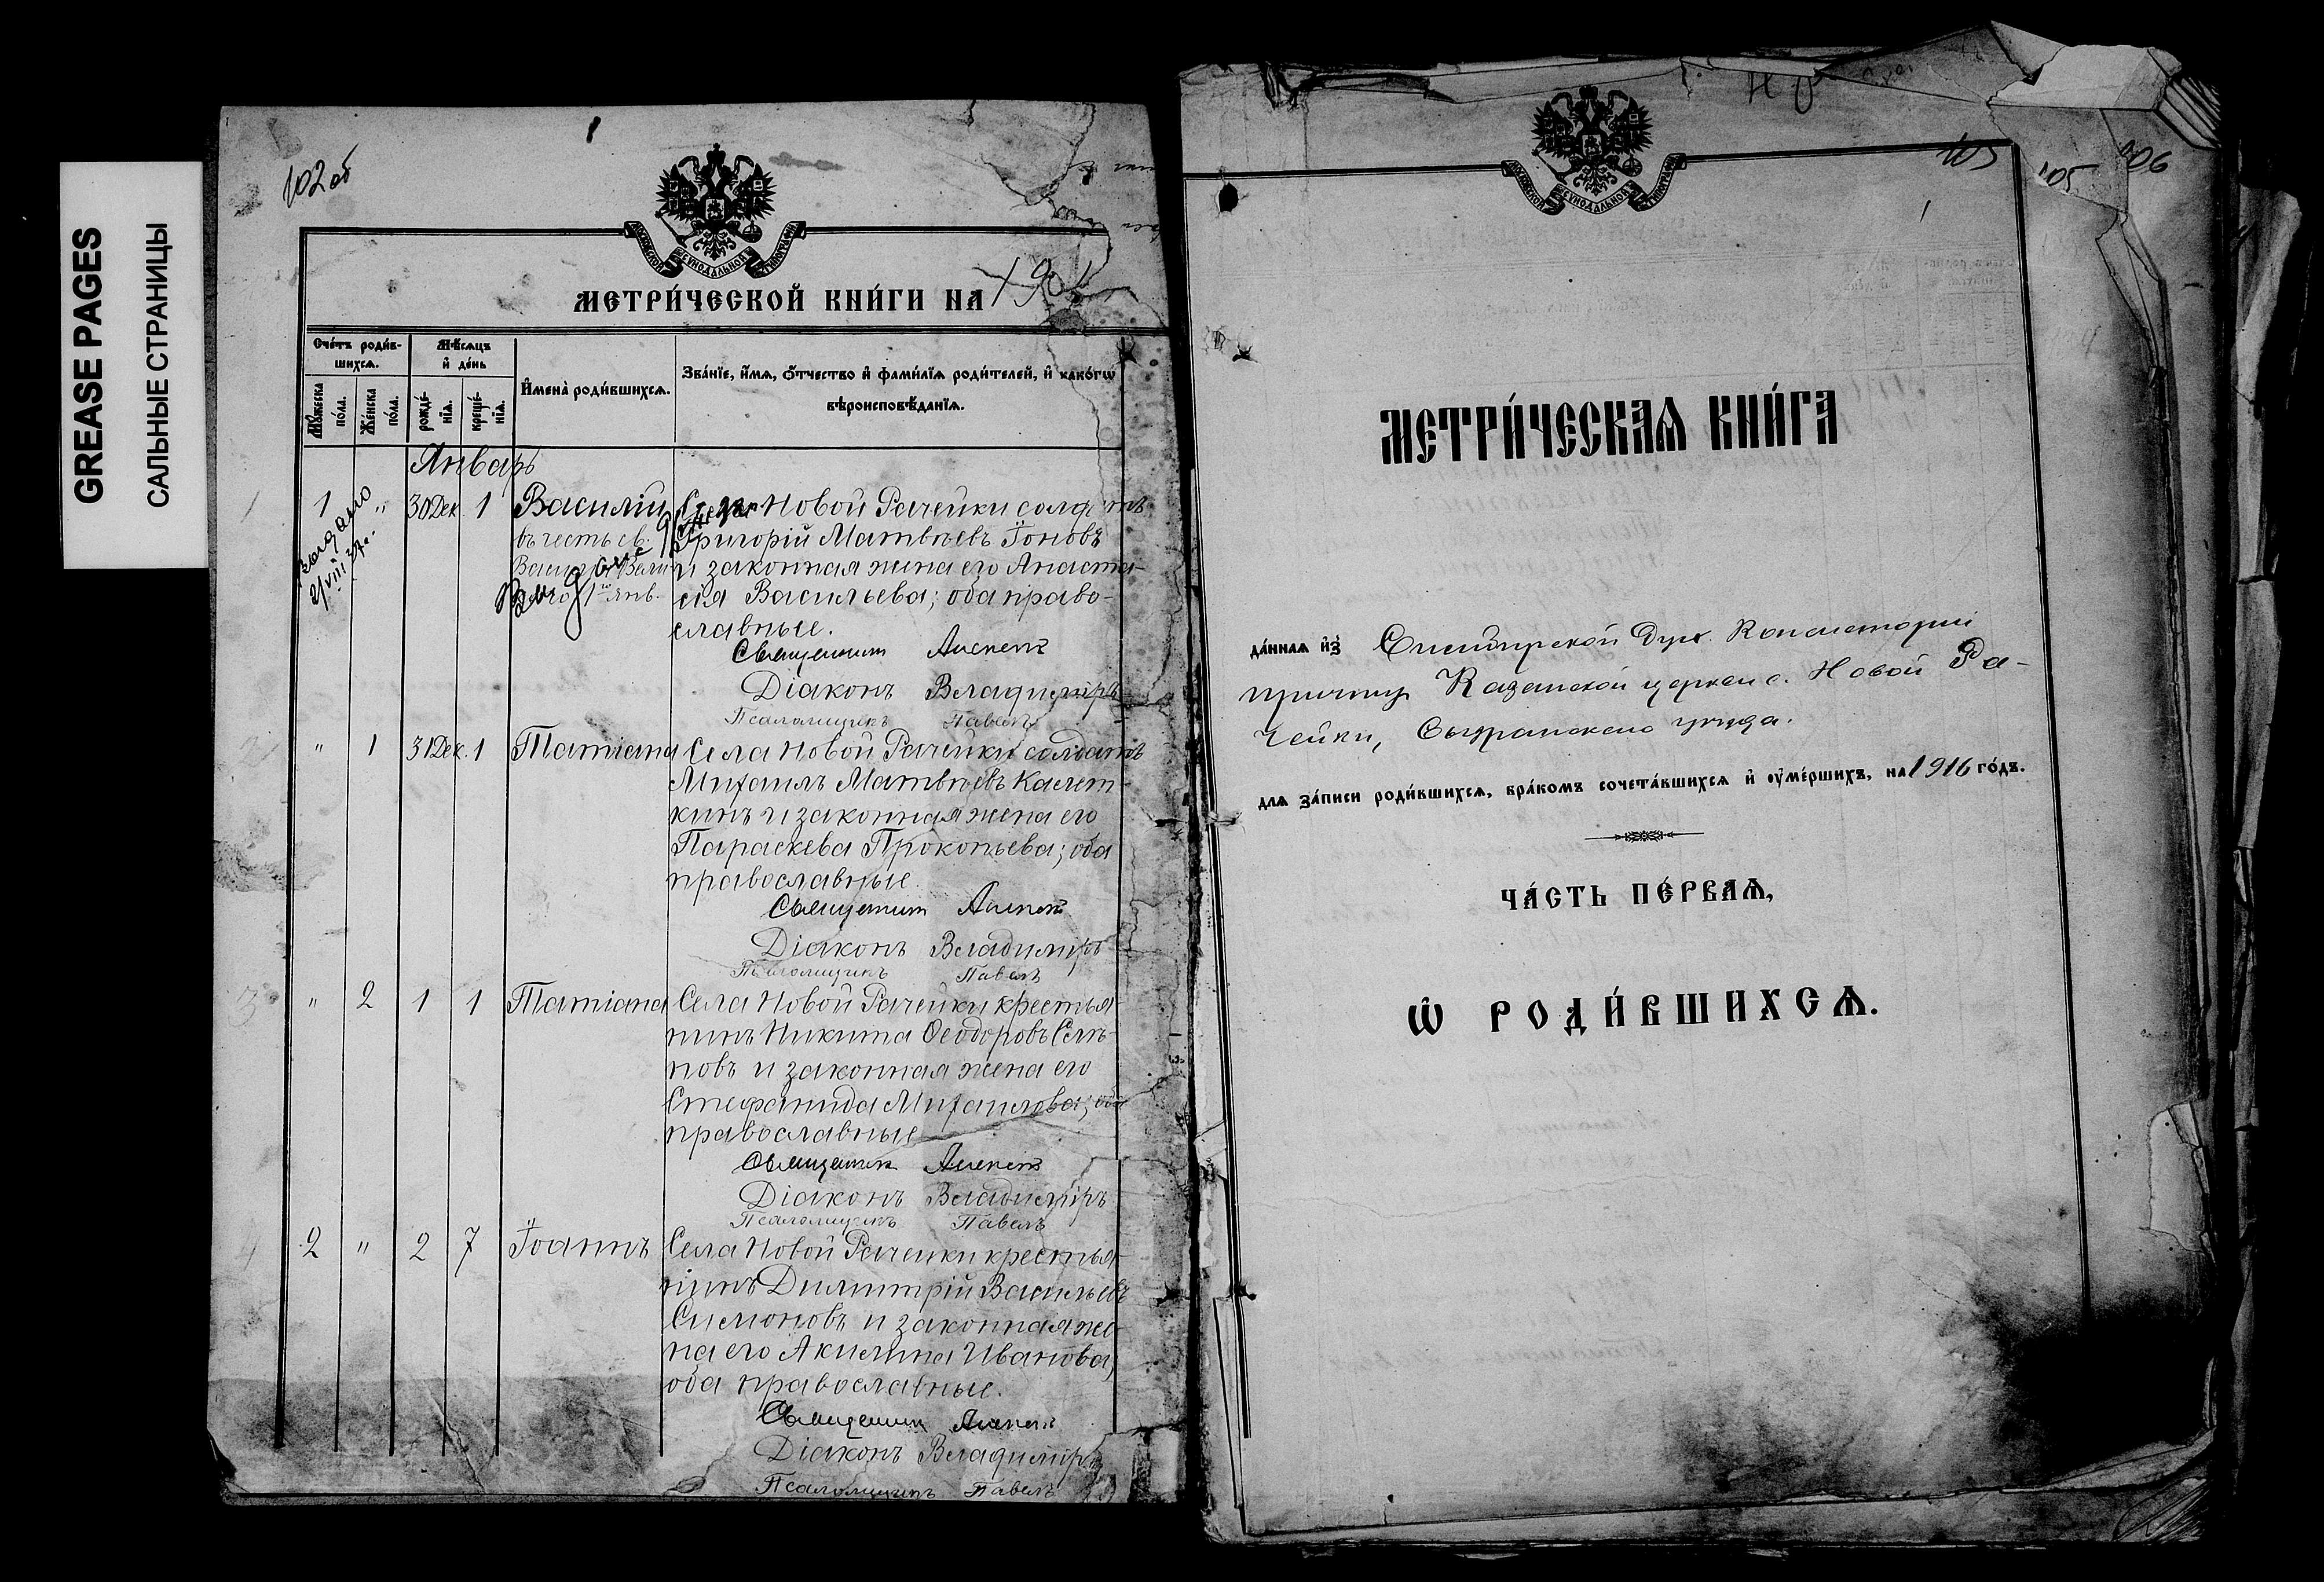 GREASE PAGES
САЛЬНЫЕ СТРАНИЦЫ
102об
МОСКОВСКОЙ СѴНОДАЛЬНОЙ ТИПОГРАФІИ
МЕТРИ́ЧЕСКОЙ КНИ́ГИ НА 190
Сче́тъ роди́в-
шихсѧ.
Мѣ́сѧцъ
и҆ де́нь
И҆мена̀ роди́вшихсѧ.
Зва́нїе, и҆́мѧ, ѻ҆́тчество и҆ фами́лїѧ роди́телей, и҆ како́гѡ
вѣроисповѣ́данїѧ.
Мꙋ́жеска
по́ла.
Же́нска
по́ла.
рожде́-
нїѧ.
креще́-
нїѧ.
Январь
1 1 " 30 Дек. 1 Василій Села Новой Рачейки солдатъ
въ честь св. Григорій Матвѣевъ Іоновъ
и законная жена его Анаста-
1го янв. сія Васильева; оба право-
славные.
выдано
2/VIII 37г.
Священникъ Алексѣй
Діаконъ Владиміръ
Псаломщикъ Павелъ
2 " 1 31 Дек. 1 Татіана Села Новой Рачейки солдатъ
Михаилъ Матвѣевъ Калет-
кинъ и законная жена его
Параскева Прокопьева; оба
православные.
Священникъ Алексѣй
Діаконъ Владиміръ
Псаломщикъ Павелъ
3 " 2 1 1 Татіана Села Новой Рачейки крестья-
нинъ Никита Ѳеодоровъ Семе-
новъ и законная жена его
Стефанида Михаилова; оба
православные
Священникъ Алексѣй
Діаконъ Владиміръ
Псаломщикъ Павелъ
4 2 " 2 7 Іоаннъ Села Новой Рачейки крестья-
нинъ Димитрій Васильевъ
Симоновъ и законная же-
на его Акилина Иванова,
оба православные.
Священникъ Алексѣй
Діаконъ Владиміръ
Псаломщикъ Павелъ
105 105 106
МОСКОВСКОЙ СѴНОДАЛЬНОЙ ТИПОГРАФІИ
МЕТРИ́ЧЕСКАѦ КНИ́ГА
да́ннаѧ и҆з̾ Симбирской Дух. Консисторіи
причту Казанской церкви с. Новой Ра-
чейки, Сызранскаго уѣзда.
длѧ за́писи роди́вшихсѧ, бра́комъ сочета́вшихсѧ и҆ ᲂу҆ме́ршихъ, на 1916 го́дъ.
ЧА́СТЬ ПЕ́РВАѦ,
Ѡ҆ РОДИ́ВШИХСѦ.